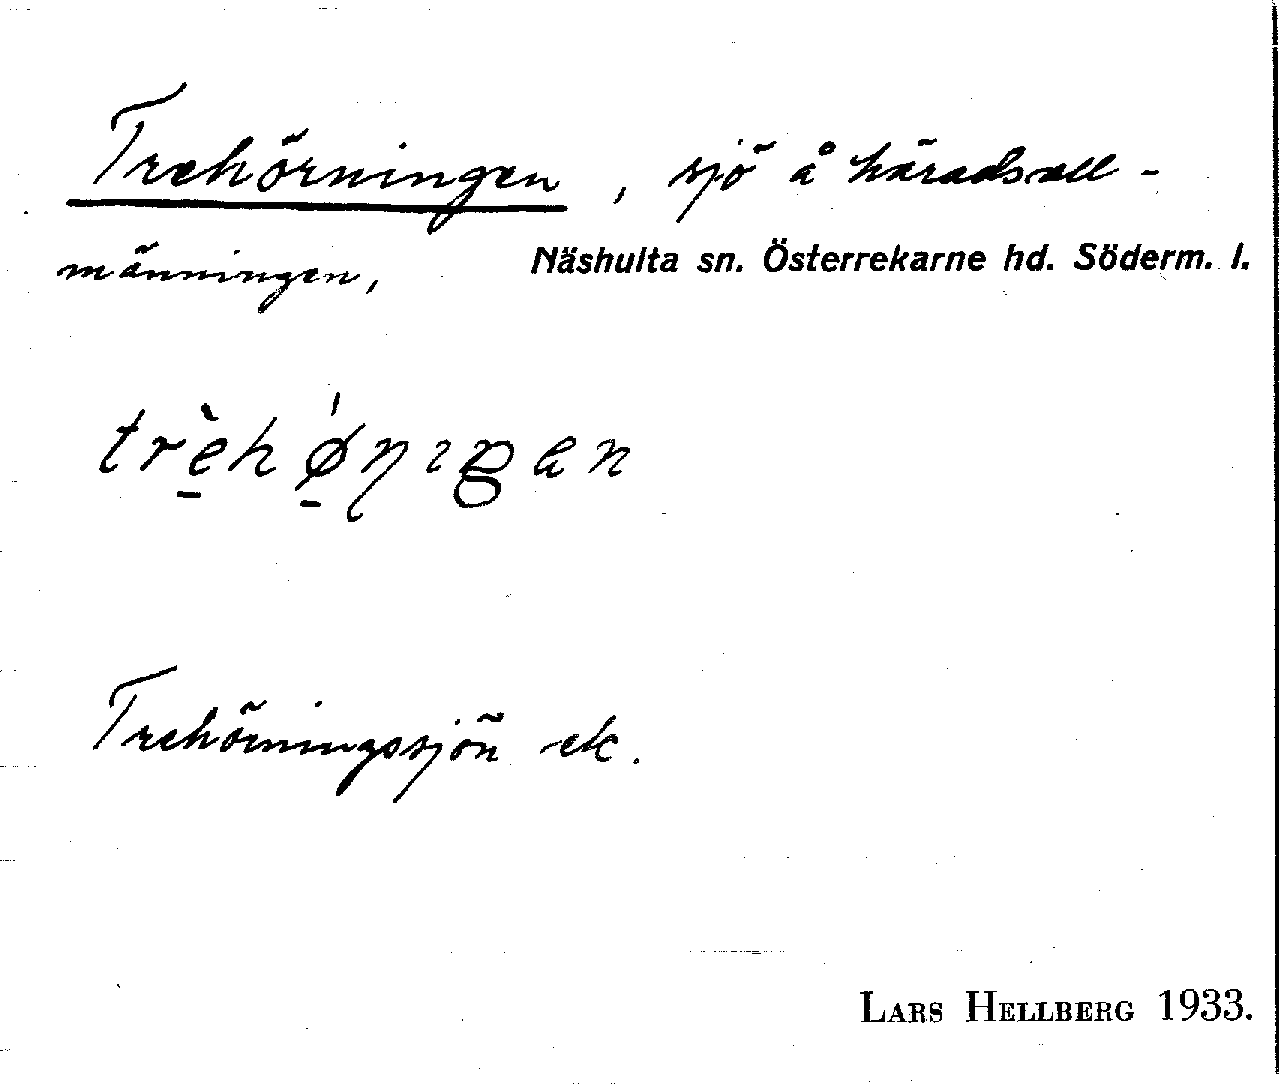 Trehörningen, sjö å häradsall-
männingen, Näshulta sn. Österrekarne hd. Söderm. l.
trè̠hǿ̠ɳıꞑan
Trehörningssjön etc.
LARS HELLBERG 1933.